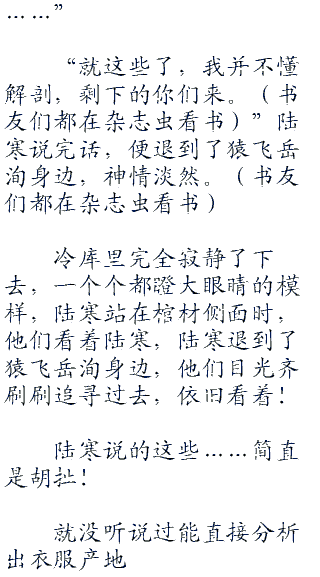 ……”
“就这些了，我并不懂
解剖，剩下的你们来。（书
友们都在杂志虫看书）”陆
寒说完话，便退到了猿飞岳
洵身边，神情淡然。（书友
们都在杂志虫看书）
冷库里完全寂静了下
去，一个个都瞪大眼睛的模
样，陆寒站在棺材侧面时，
他们看着陆寒，陆寒退到了
猿飞岳洵身边，他们目光齐
刷刷追寻过去，依旧看着！
陆寒说的这些……简直
是胡扯！
就没听说过能直接分析
出衣服产地